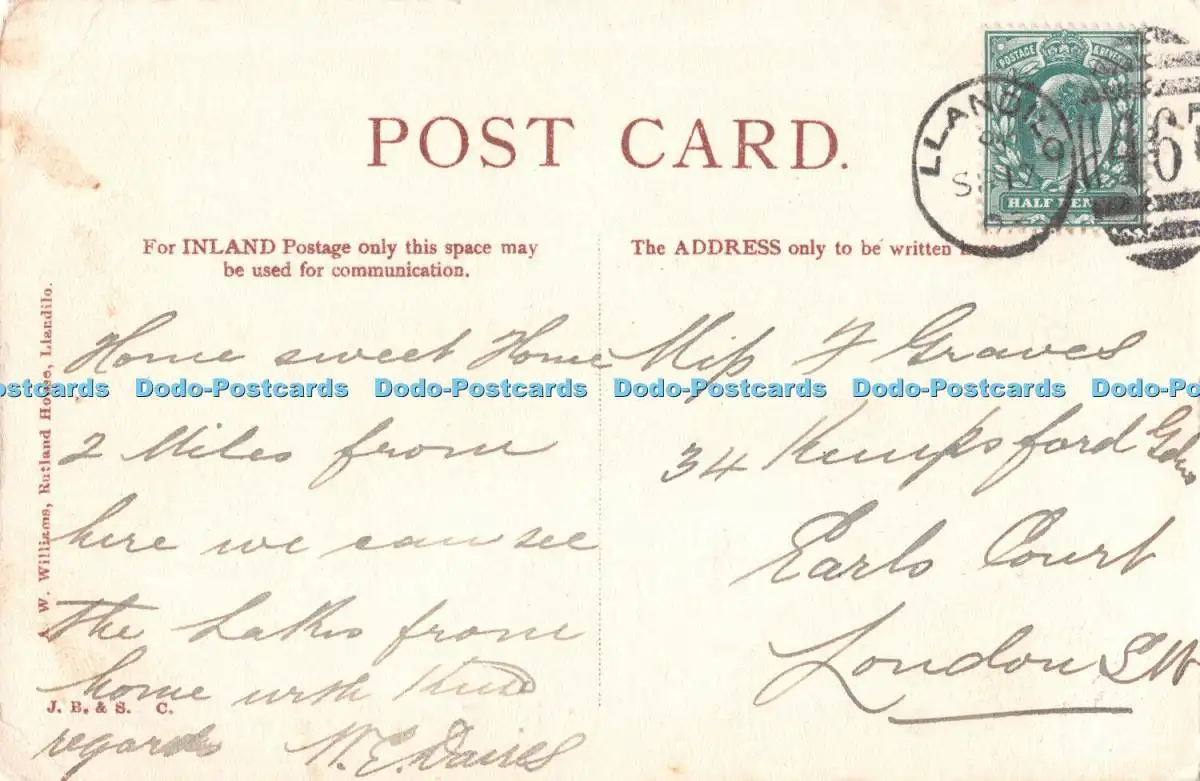 POSTAGE & REVENUE
HALF PEN
LLANDILO
SP 17
467
POST CARD.
For INLAND Postage only this space may
be used for communication.
The ADDRESS only to be written here.
W. Williams, Rutland House, Llandilo.
Home sweet Home
2 Miles from
here we can see
the Lakes from
home with kind
regards W. E. Davies
J. B. & S. C.
Miss F Graves
34 Kempsford Gdns
Earls Court
London S W
Dodo-Postcards Dodo-Postcards Dodo-Postcards Dodo-Postcards Dodo-Postcards Dodo-Postcards